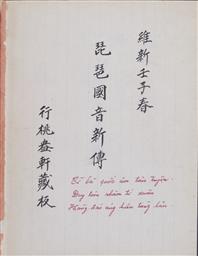 維新壬子春
琵琶國音新傳
行桃盎軒藏板
Tì bà quốc âm tân truyện.
Duy tân nhâm tí xuân
hiên tàng bản